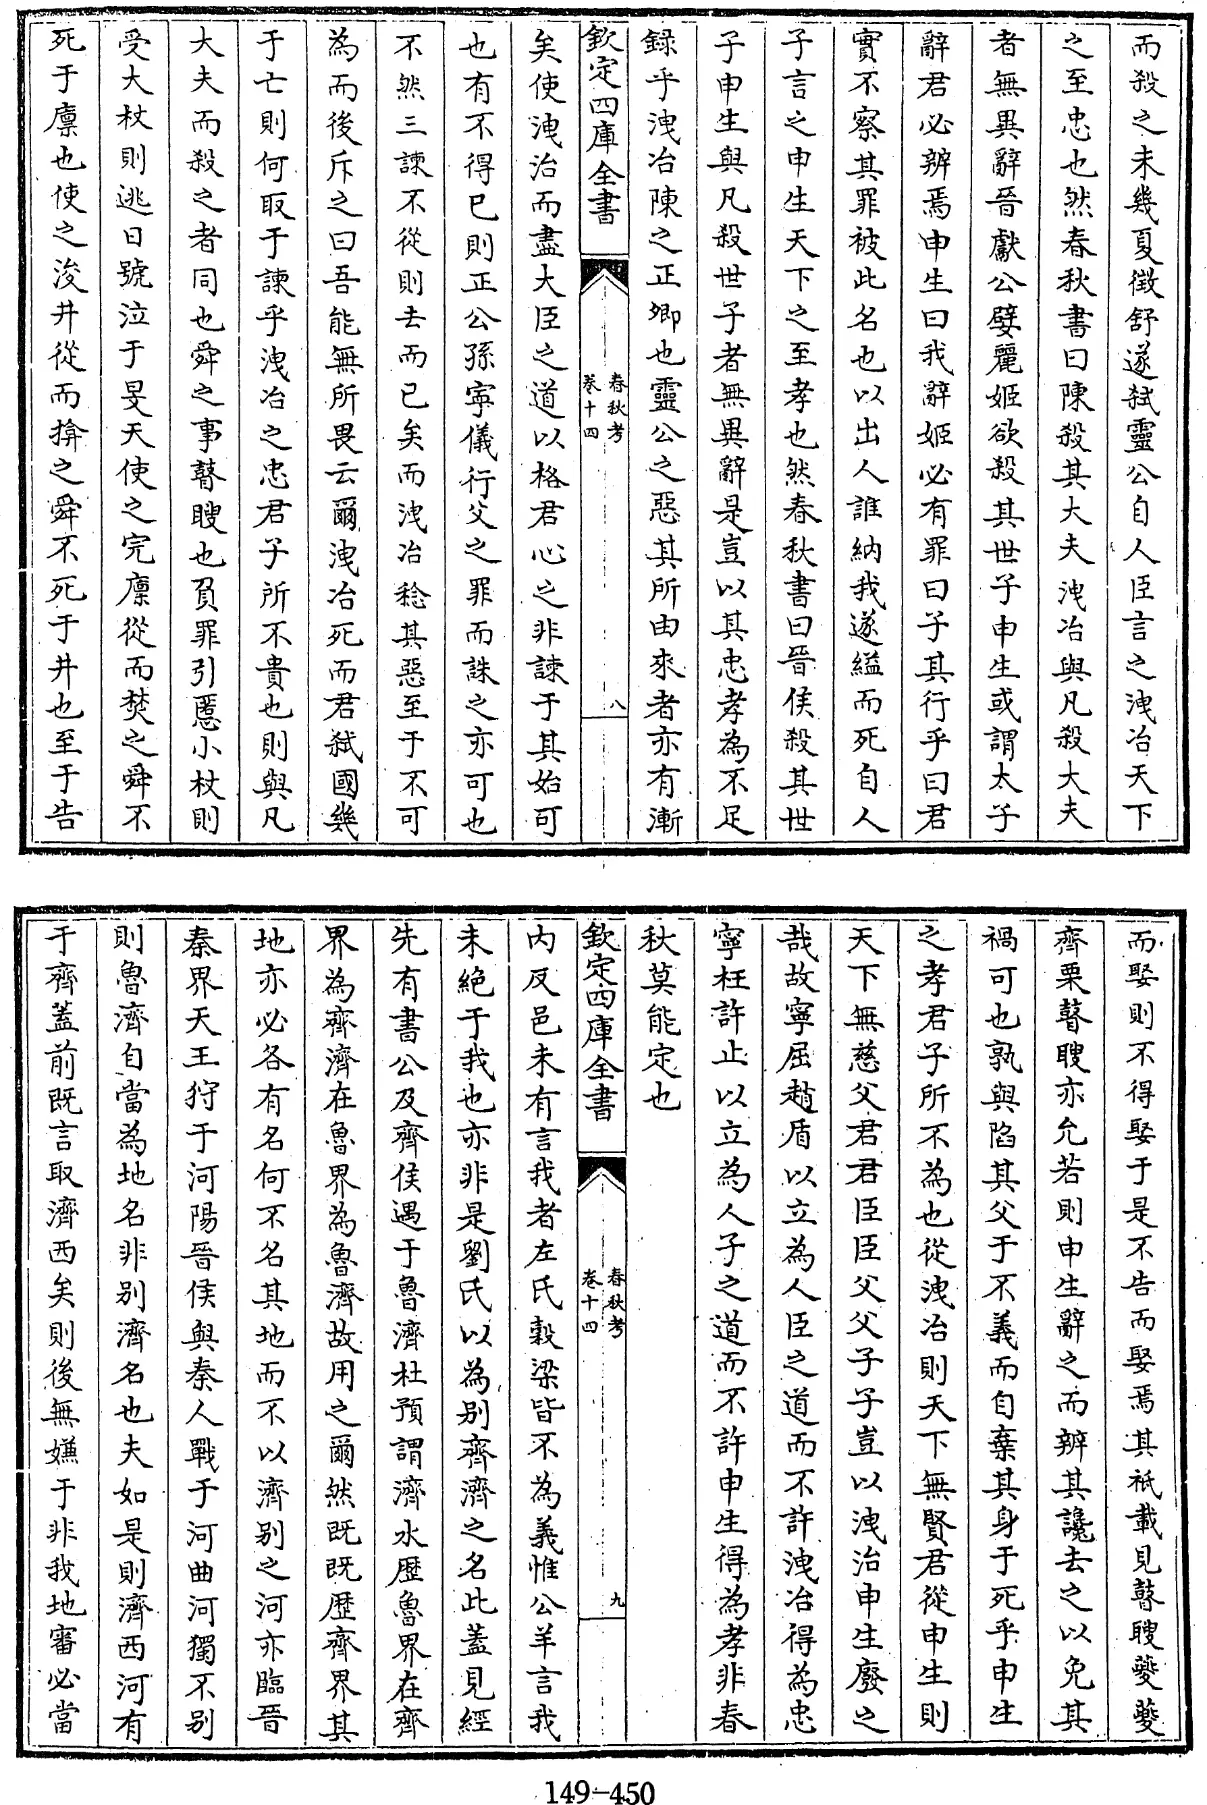 而殺之未幾夏徴舒遂弑靈公自人臣言之洩冶天下
之至忠也然春秋書曰陳殺其大夫洩冶與凡殺大夫
者無異辭晉獻公嬖麗姬欲殺其世子申生或謂太子
辭君必辨焉申生曰我辭姬必有罪曰子其行乎曰君
實不察其罪被此名也以出人誰納我遂縊而死自人
子言之申生天下之至孝也然春秋書曰晉侯殺其世
子申生與凡殺世子者無異辭是豈以其忠孝為不足
録乎洩冶陳之正卿也靈公之惡其所由來者亦有漸
欽定四庫全書
春秋考
卷十四
八
矣使洩冶而盡大臣之道以格君心之非諫于其始可
也有不得已則正公孫寧儀行父之罪而誅之亦可也
不然三諫不從則去而已矣而洩冶稔其惡至于不可
為而後斥之曰吾能無所畏云爾洩冶死而君弑國幾
于亡則何取于諫乎洩冶之忠君子所不貴也則與凡
大夫而殺之者同也舜之事瞽瞍也負罪引慝小杖則
受大杖則逃日號泣于旻天使之完廩從而焚之舜不
死于廪也使之浚井從而揜之舜不死于井也至于告
而娶則不得娶于是不告而娶焉其祗載見瞽瞍夔夔
齊栗瞽瞍亦允若則申生辭之而辨其讒去之以免其
禍可也孰與陷其父于不義而自棄其身于死乎申生
之孝君子所不為也從洩冶則天下無賢君從申生則
天下無慈父君君臣臣父父子子豈以洩冶申生廢之
哉故寧屈趙盾以立為人臣之道而不許洩冶得為忠
寧枉許止以立為人子之道而不許申生得為孝非春
秋莫能定也
欽定四庫全書
春秋考
卷十四
九
内反邑未有言我者左氏穀梁皆不為義惟公羊言我
未絶于我也亦非是劉氏以為别齊濟之名此蓋見經
先有書公及齊侯遇于魯濟杜預謂濟水歴魯界在齊
界為齊濟在魯界為魯濟故用之爾然既既歴齊界其
地亦必各有名何不名其地而不以濟别之河亦臨晉
秦界天王狩于河陽晉侯與秦人戰于河曲河獨不别
則魯濟自當為地名非别濟名也夫如是則濟西河有
于齊蓋前既言取濟西矣則後無嫌于非我地審必當
149-450